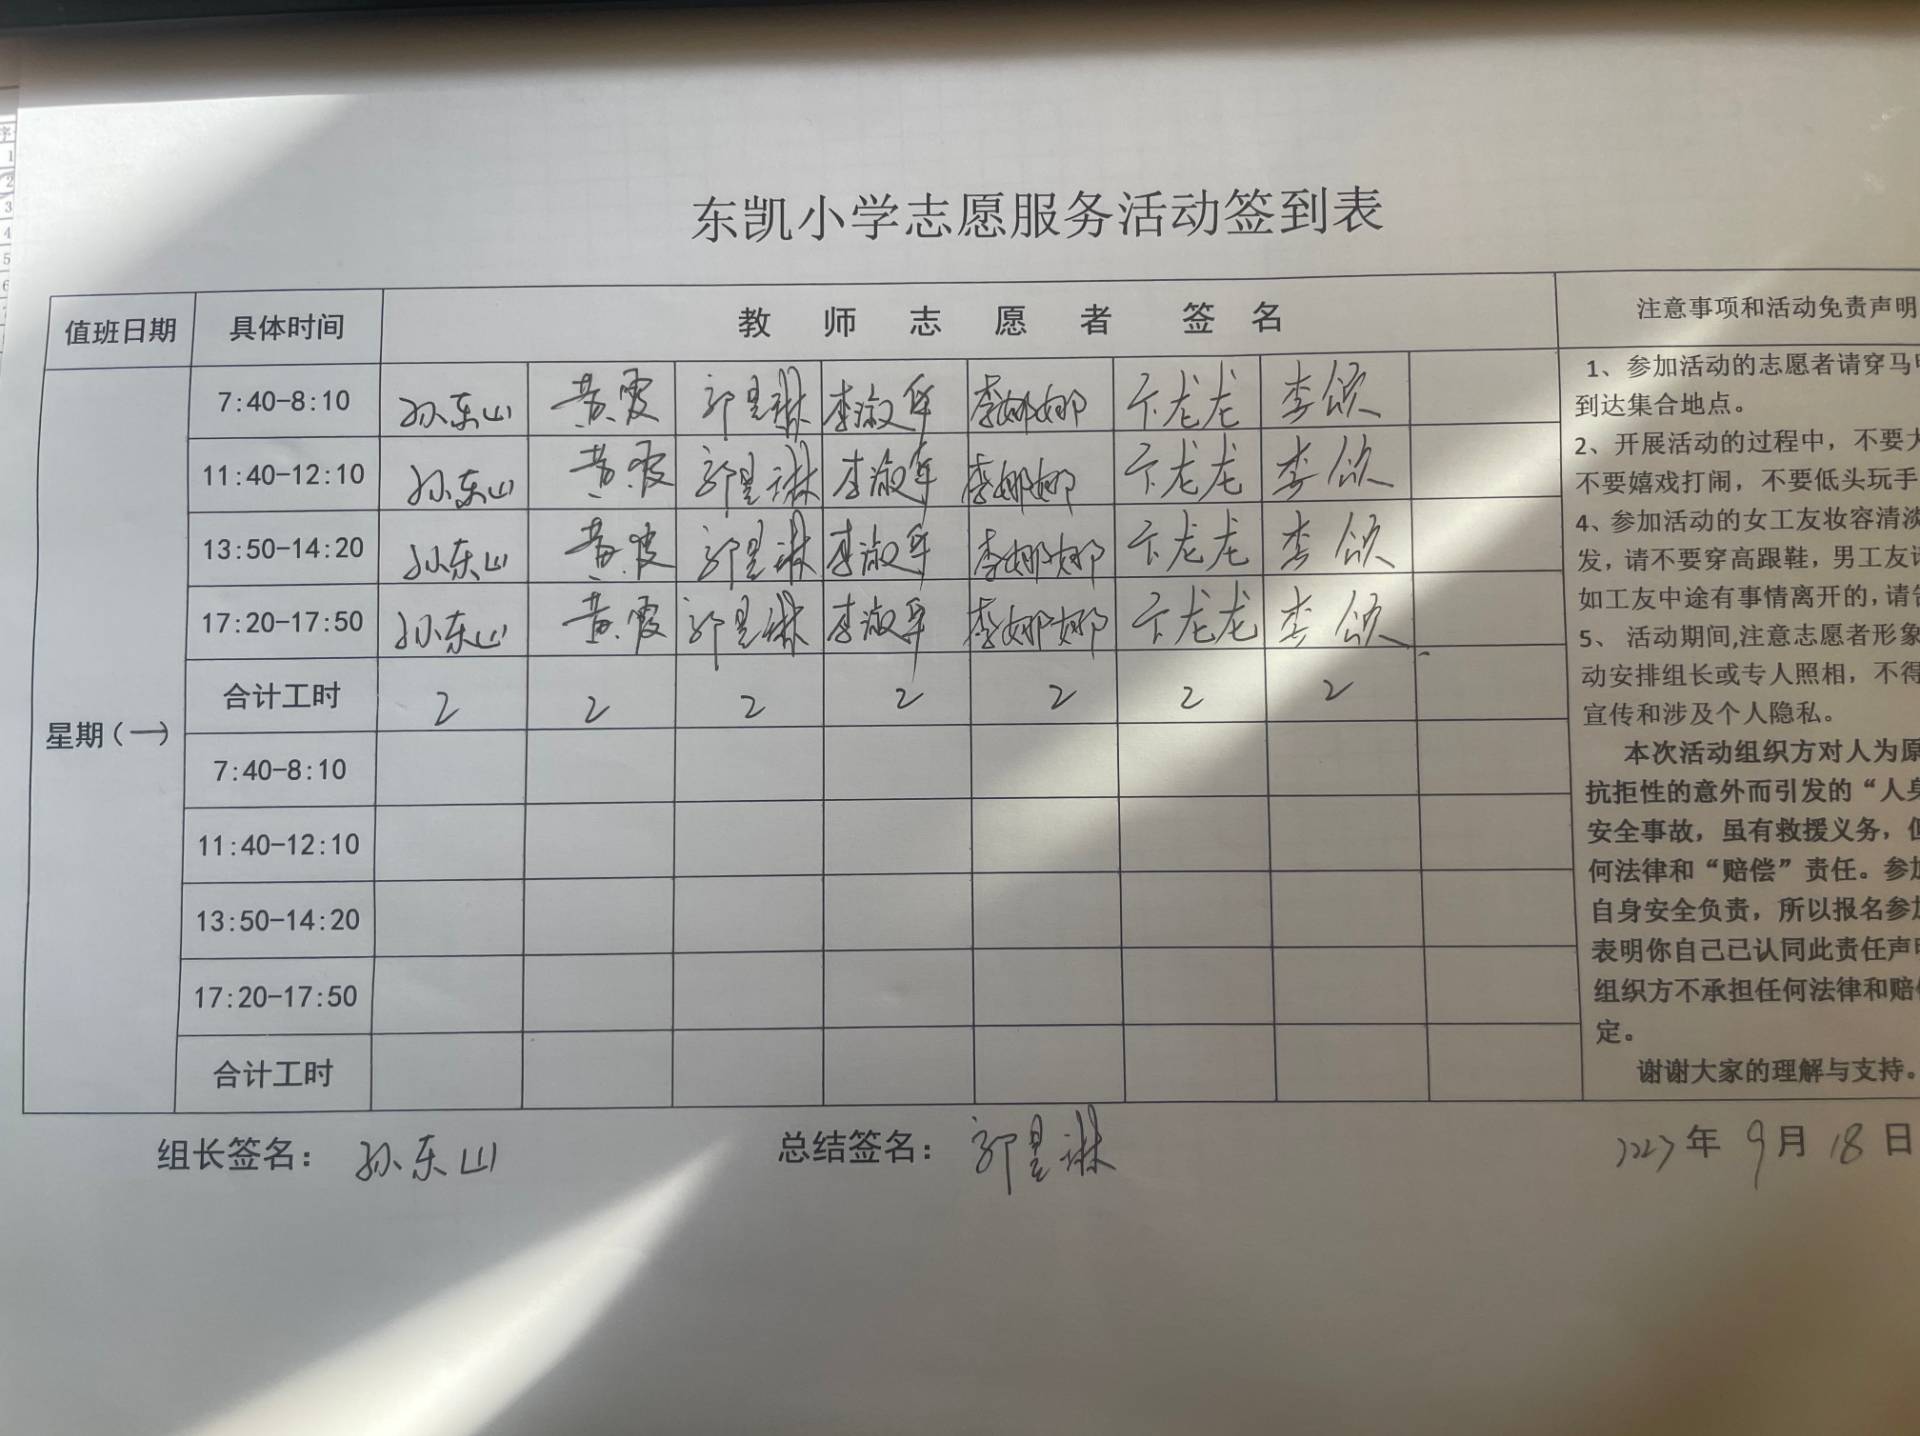 东凯小学志愿服务活动签到表
值班日期 具体时间 教师志愿者 签名 注意事项和活动免责声明
星期(一)
7:40-8:10 孙东山 黄霞 郭昱琳 李淑军 李娜娜 卞龙龙 李颂
11:40-12:10 孙东山 黄霞 郭昱琳 李淑军 李娜娜 卞龙龙 李颂
13:50-14:20 孙东山 黄霞 郭昱琳 李淑军 李娜娜 卞龙龙 李颂
17:20-17:50 孙东山 黄霞 郭昱琳 李淑军 李娜娜 卞龙龙 李颂
合计工时 2 2 2 2 2 2 2
7:40-8:10
11:40-12:10
13:50-14:20
17:20-17:50
合计工时
1、参加活动的志愿者请穿马甲
到达集合地点。
2、开展活动的过程中，不要大
不要嬉戏打闹，不要低头玩手
4、参加活动的女工友妆容清淡
发，请不要穿高跟鞋，男工友
如工友中途有事情离开的，请告
5、 活动期间,注意志愿者形象
动安排组长或专人照相，不得
宣传和涉及个人隐私。
本次活动组织方对人为原
抗拒性的意外而引发的“人身
安全事故，虽有救援义务，但
何法律和“赔偿”责任。参加
自身安全负责，所以报名参加
表明你自己已认同此责任声明
组织方不承担任何法律和赔偿
定。
谢谢大家的理解与支持。
组长签名： 孙东山 总结签名： 郭昱琳 2023年9月18日
序
1
2
3
4
5
6